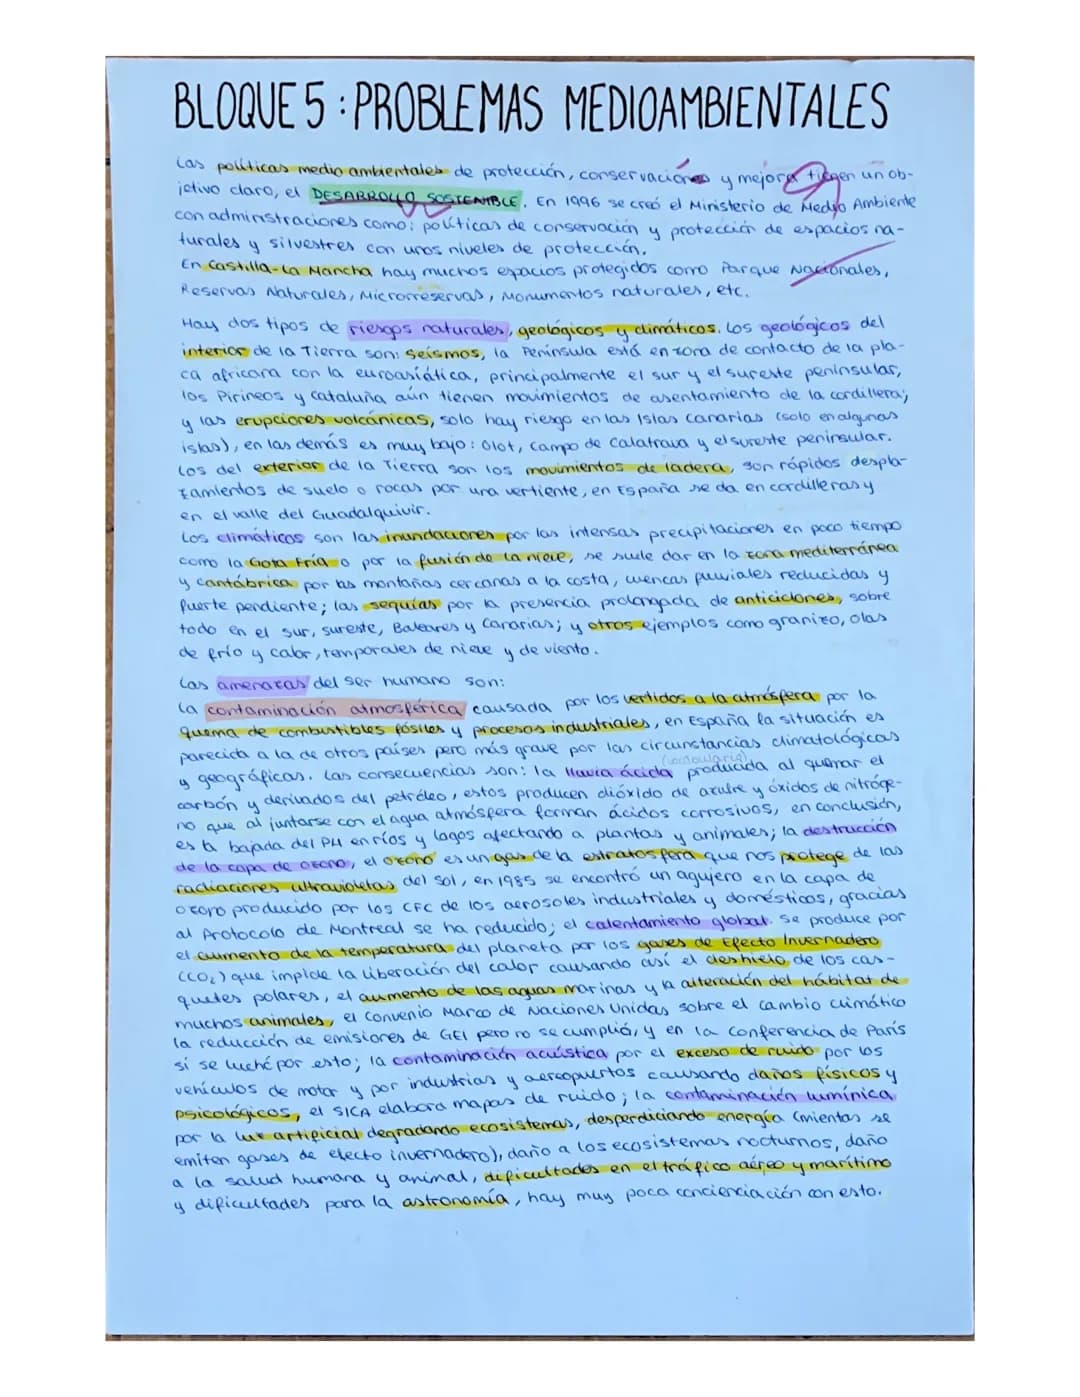 BLOQUE 5 : PROBLEMAS MEDIOAMBIENTALES
Las políticas medio ambientales de protección, conservaciónes y mejora tienen un ob-
jetivo claro, el DESARROLLO SOSTENIBLE. En 1996 se creó el Ministerio de Medio Ambiente
con adminstraciones como: políticas de conservación y protección de espacios na-
turales y silvestres con unos niveles de protección.
En Castilla-La Mancha hay muchos espacios protegidos como Parque Nacionales,
Reservas Naturales, Microrreservas, Monumentos naturales, etc.
Hay dos tipos de riesgos naturales, geológicos y climáticos. Los geológicos del
interior de la Tierra son: Seísmos, la Península está en zona de contacto de la pla-
ca africana con la euroasiática, principalmente el sur y el sureste peninsular,
los Pirineos y Cataluña aún tienen movimientos de asentamiento de la cordillera;
y las erupciones volcánicas, solo hay riesgo en las Islas Canarias (solo en algunas
islas), en las demás es muy bajo: Olot, Campo de Calatrava y el sureste peninsular.
Los del exterior de la Tierra son los movimientos de ladera, son rápidos despla-
zamientos de suelo o rocas por una vertiente, en España se da en cordilleras y
en el valle del Guadalquivir.
Los climáticos son las inundaciones por las intensas precipitaciones en poco tiempo
como la Gota Fría o por la fusión de la nieve, se suele dar en la zona mediterránea
y cantábrica por las montañas cercanas a la costa, cuencas pluviales reducidas y
fuerte pendiente; las sequías por la presencia prolongada de anticiclones, sobre
todo en el sur, sureste, Baleares y Canarias; y otros ejemplos como granizo, olas
de frío y calor, temporales de nieve y de viento.
Las amenazas del ser humano son:
La contaminación atmosférica causada por los vertidos a la atmósfera por la
quema de combustibles fósiles y procesos industriales, en España la situación es
parecida a la de otros países pero más grave por las circunstancias climatológicas
y geográficas. Las consecuencias son: la lluvia ácida (vocabulario) producida al quemar el
carbón y derivados del petróleo, estos producen dióxido de azufre y óxidos de nitróge-
no que al juntarse con el agua atmósfera forman ácidos corrosivos, en conclusión,
es la bajada del PH en ríos y lagos afectando a plantas y animales; la destrucción
de la capa de ozono, el ozono es un gas de la estratosfera que nos protege de las
radiaciones ultravioletas del sol, en 1985 se encontró un agujero en la capa de
ozono producido por los CFC de los aerosoles industriales y domésticos, gracias
al Protocolo de Montreal se ha reducido; el calentamiento global. Se produce por
el aumento de la temperatura del planeta por los gases de Efecto Invernadero
(CO₂) que impide la liberación del calor causando así el deshielo de los cas-
quetes polares, el aumento de las aguas marinas y la alteración del hábitat de
muchos animales, el Convenio Marco de Naciones Unidas sobre el cambio climático
la reducción de emisiones de GEI pero no se cumplió, y en la Conferencia de París
sí se luchó por esto; la contaminación acústica por el exceso de ruido por los
vehículos de motor y por industrias y aereopuertos causando daños físicos y
psicológicos, el SICA elabora mapas de ruido; la contaminación lumínica
por la luz artificial degradando ecosistemas, desperdiciando energía (mientas se
emiten gases de efecto invernadero), daño a los ecosistemas nocturnos, daño
a la salud humana y animal, dificultades en el tráfico aéreo y marítimo
y dificultades para la astronomía, hay muy poca concienciación con esto.